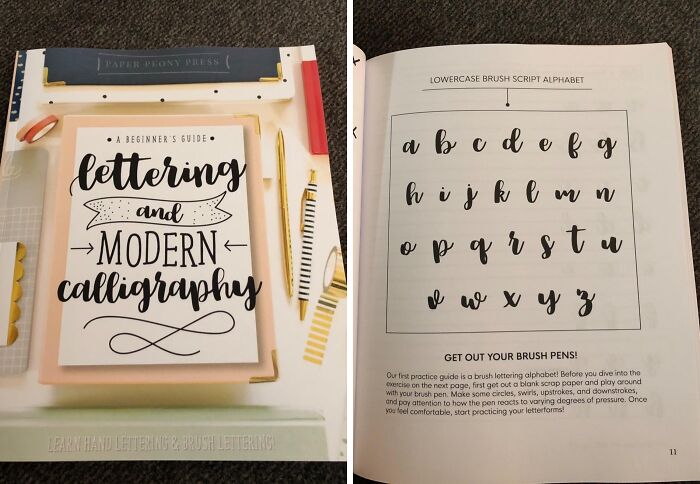 PAPER PEONY PRESS
• A BEGINNER'S GUIDE •
lettering
and
MODERN
calligraphy
LEARN HAND LETTERING & BRUSH LETTERING!
LOWERCASE BRUSH SCRIPT ALPHABET
a b c d e f g
h i j k l m n
o p q r s t u
v w x y z
GET OUT YOUR BRUSH PENS!
Our first practice guide is a brush lettering alphabet! Before you dive into the
exercise on the next page, first get out a blank scrap paper and play around
with your brush pen. Make some circles, swirls, upstrokes, and downstrokes,
and pay attention to how the pen reacts to varying degrees of pressure. Once
you feel comfortable, start practicing your letterforms!
11